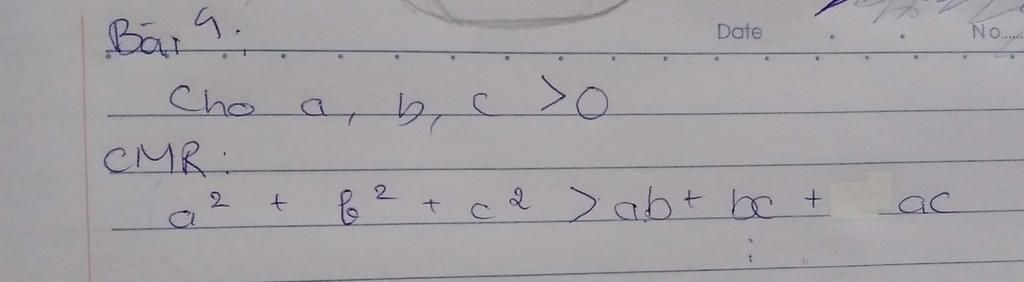 Bài 4.
Date No.....
Cho a, b, c >0
CMR:
a² + b² + c² > ab + bc + ac